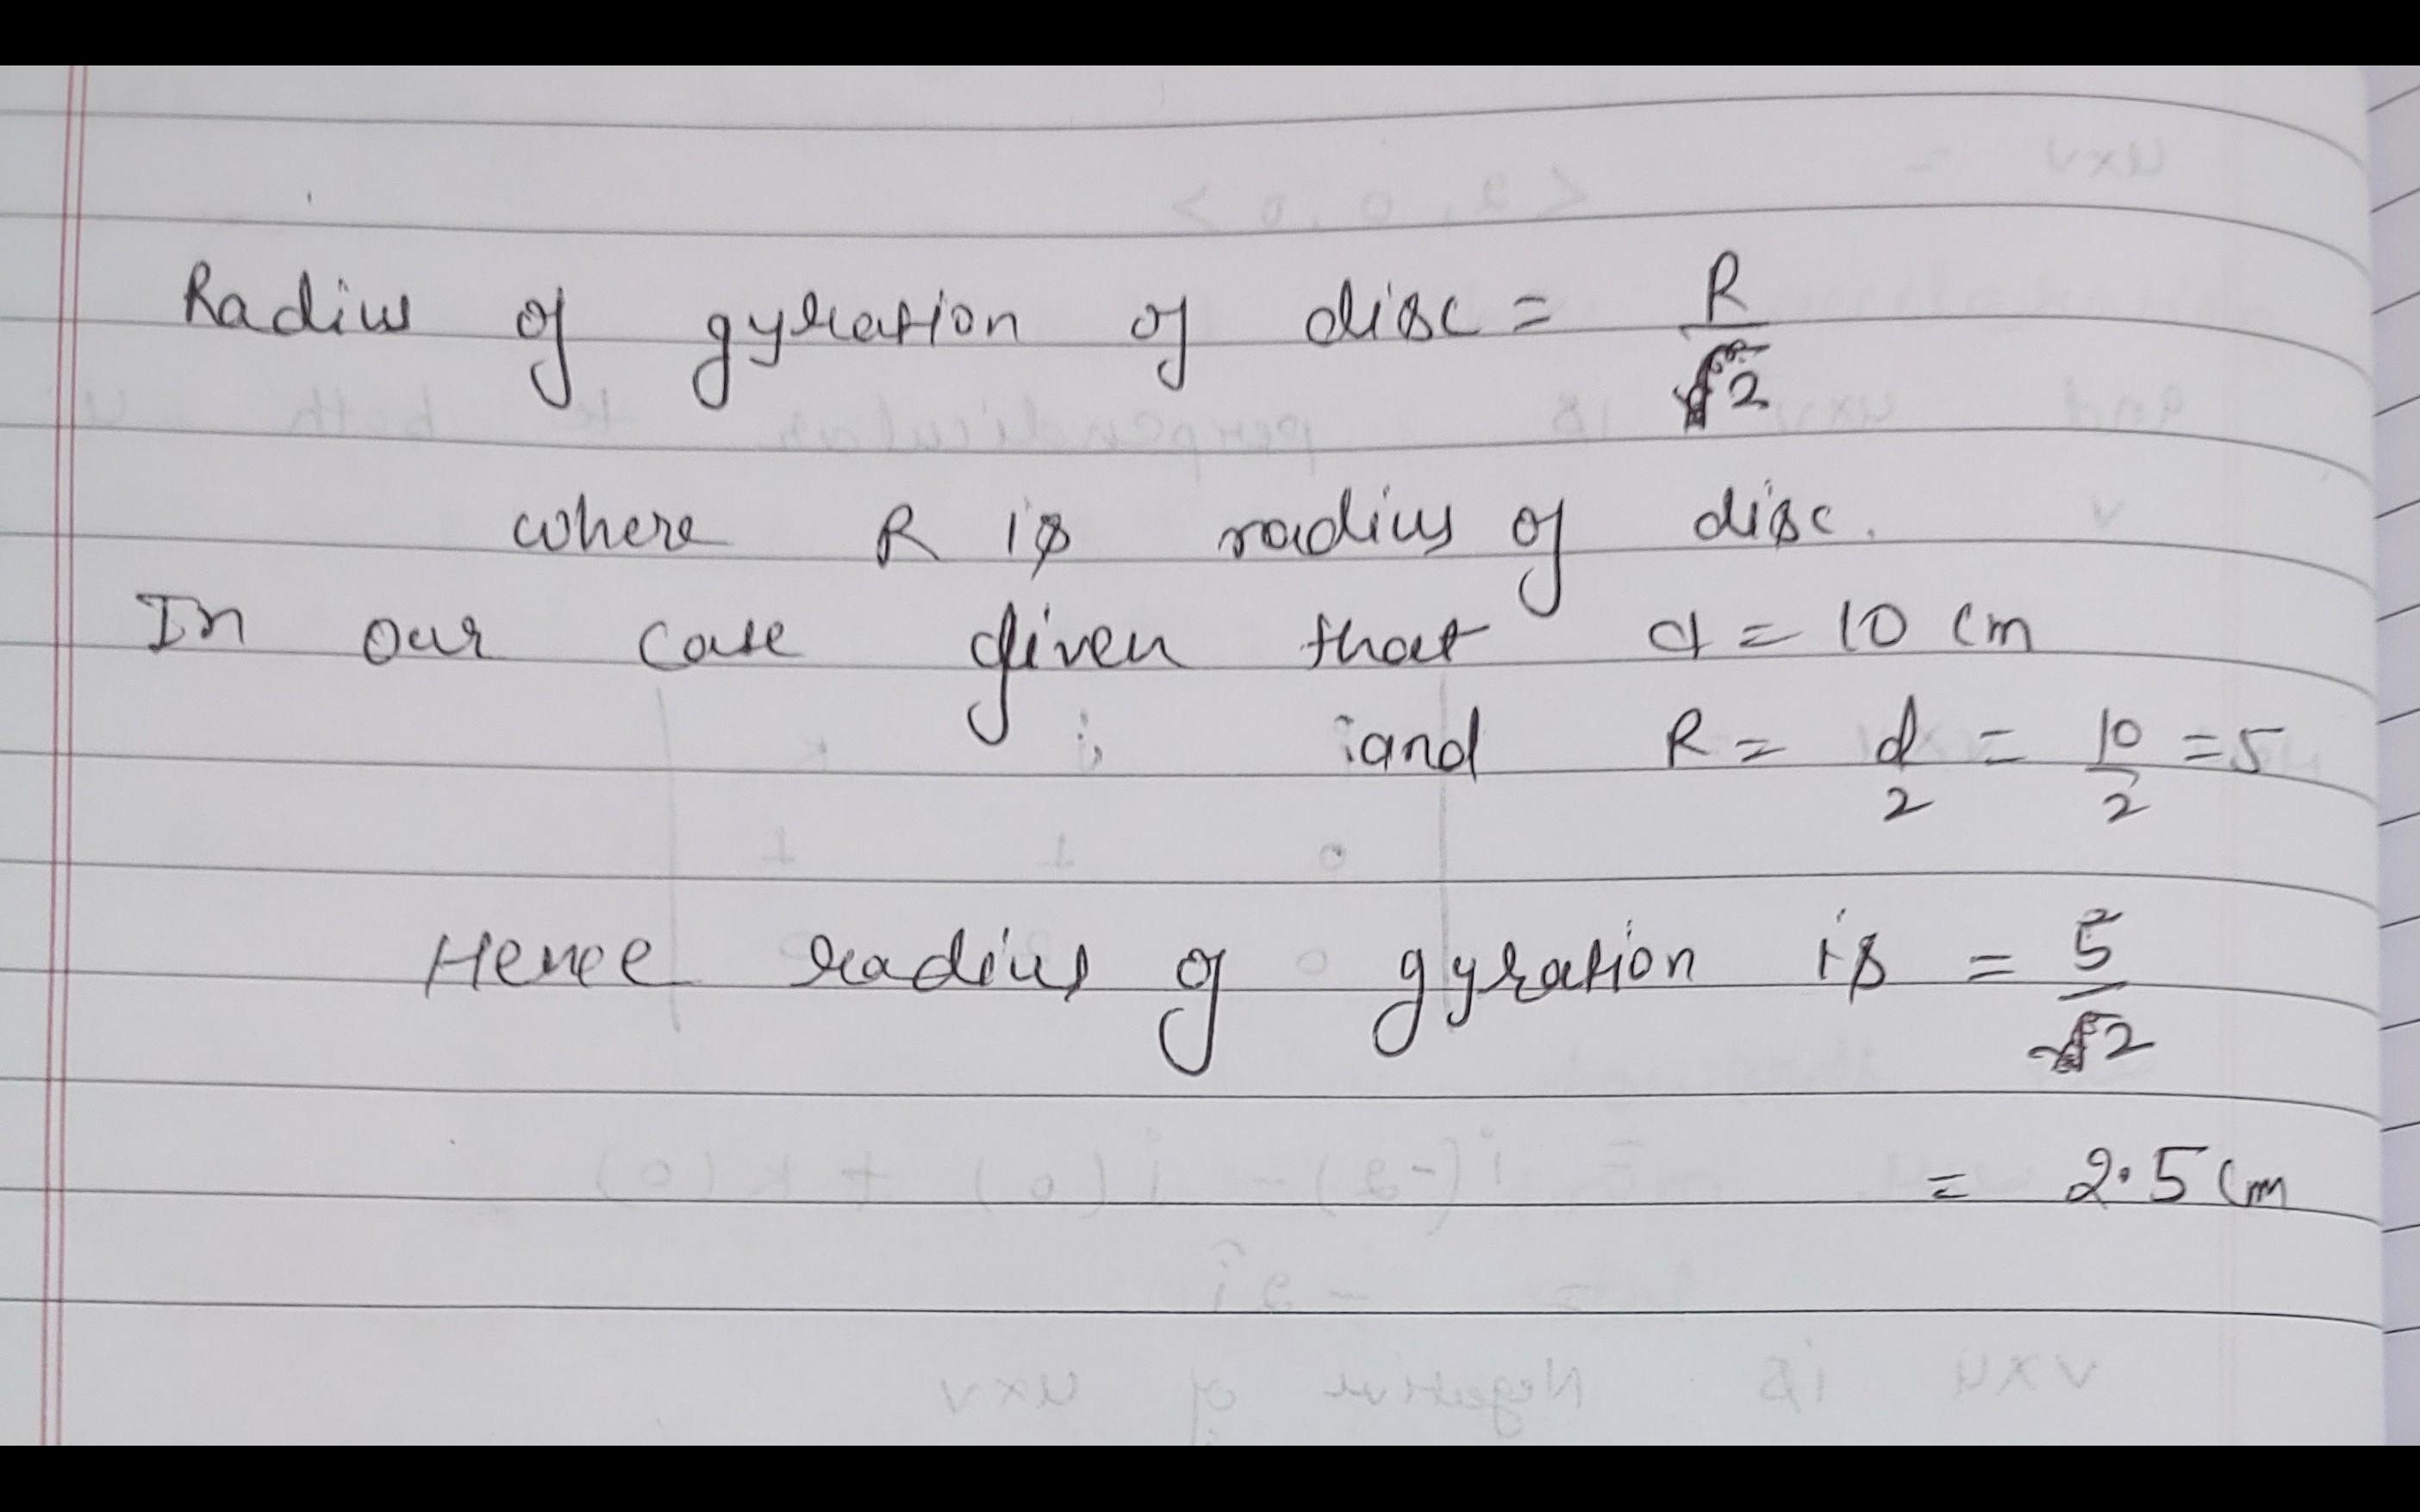 Radius of gyration of disc = R
2
where R is radius of disc.
In our case given that d = 10 cm
and R = d = 10 = 5
2 2
Hence radius of gyration is = 5
2
= 2.5 cm